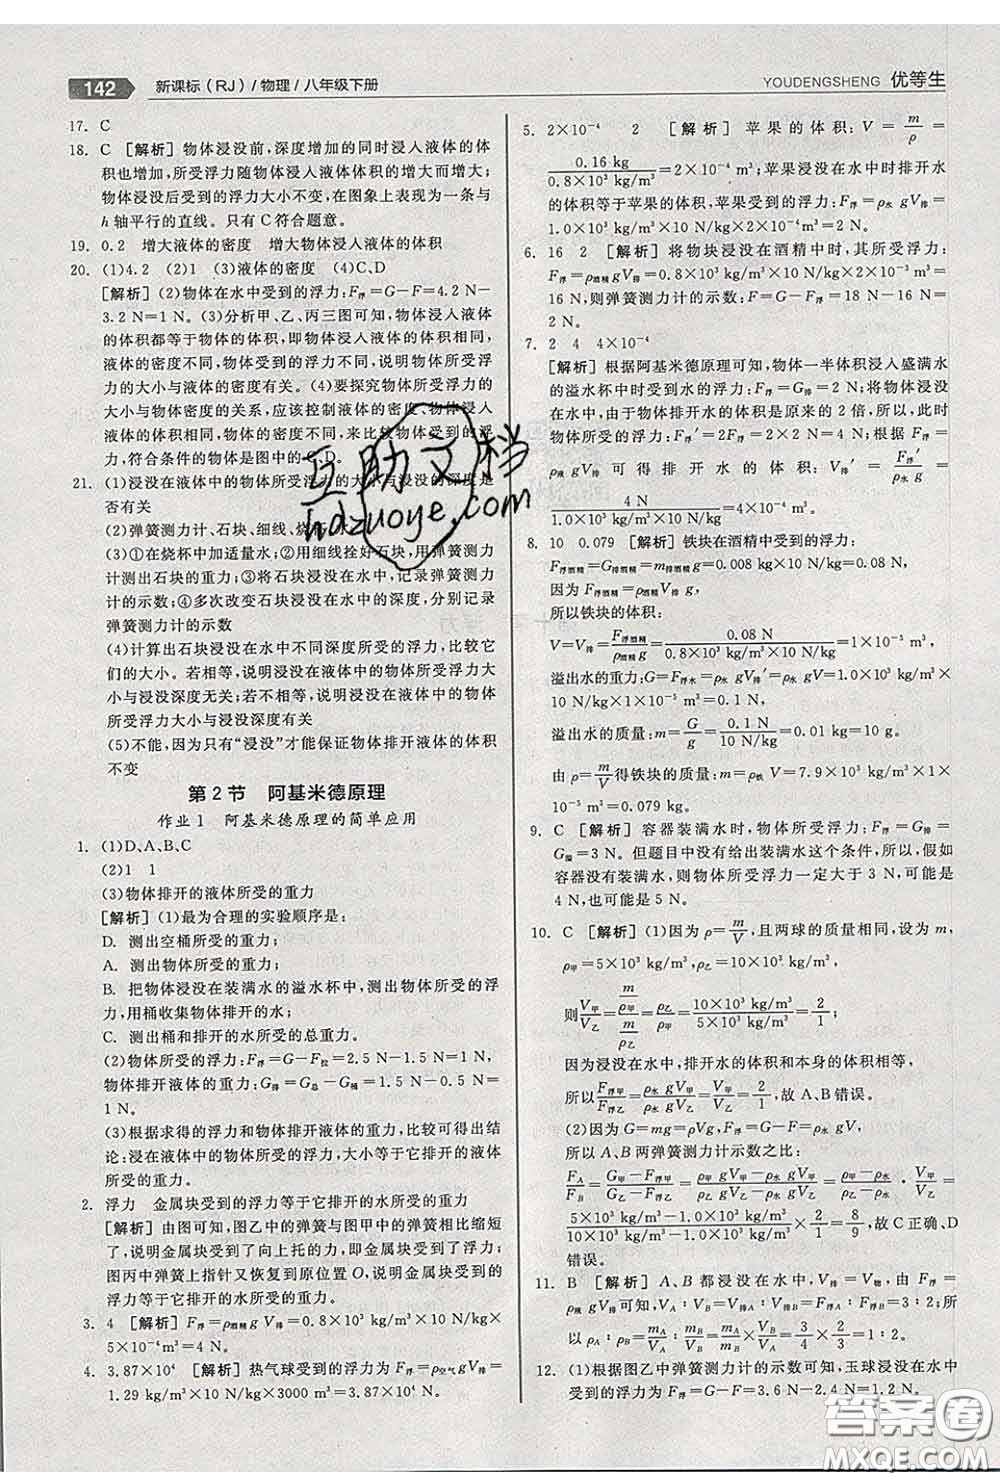 142 新课标(RJ)/物理/八年级下册
YOUDENGSHENG 优等生
17. C
18. C [解析] 物体浸没前,深度增加的同时浸入液体的体
积也增加,所受浮力随物体浸入液体体积的增大而增大;
物体浸没后受到的浮力大小不变,在图象上表现为一条与
h 轴平行的直线。只有 C 符合题意。
19. 0.2 增大液体的密度 增大物体浸入液体的体积
20. (1)4.2 (2)1 (3)液体的密度 (4)C、D
[解析] (2)物体在水中受到的浮力:F浮=G-F=4.2 N-
3.2 N=1 N。(3)分析甲、乙、丙三图可知,物体浸入液体
的体积都等于物体的体积,即物体浸入液体的体积相同,
液体的密度不同,物体受到的浮力不同,说明物体所受浮
力的大小与液体的密度有关。(4)要探究物体所受浮力的
大小与物体密度的关系,应该控制液体的密度、物体浸入
液体的体积相同,物体的密度不同,来比较物体受到的浮
力,符合条件的物体是图中的 C、D。
21. (1)浸没在液体中的物体所受浮力的大小与浸没的深度是
否有关
(2)弹簧测力计、石块、细线、烧杯、水
(3)①在烧杯中加适量水;②用细线拴好石块,用弹簧测力
计测出石块的重力;③将石块浸没在水中,记录弹簧测力
计的示数;④多次改变石块浸没在水中的深度,分别记录
弹簧测力计的示数
(4)计算出石块浸没在水中不同深度所受的浮力大小,进
行比较并得出结论。若相等,说明浸没在液体中的物体所
受浮力大小与浸没深度无关;若不相等,说明浸没在液体中的物体
所受浮力大小与浸没深度有关
(5)不能,因为只有“浸没”才能保证物体排开液体的体积
不变
第 2 节 阿基米德原理
作业 1 阿基米德原理的简单应用
1. (1)D、A、B、C
(2)1 1
(3)物体排开的液体所受的重力
[解析] (1)最为合理的实验顺序是:
D. 测出空桶所受的重力;
A. 测出物体所受的重力;
B. 把物体浸没在装满水的溢水杯中,测出物体所受的浮
力,用桶收集物体排开的水;
C. 测出桶和排开的水所受的总重力。
(2)物体所受的浮力:F浮=G-F拉=2.5 N-1.5 N=1 N,
物体排开液体的重力:G排=G总-G桶=1.5 N-0.5 N=
1 N。
(3)根据求得的浮力和物体排开液体的重力,比较可得出结
论:浸在液体中的物体所受浮力的大小等于物体排开的液
体所受的重力。
2. 浮力 金属块受到的浮力等于它排开的水所受的重力
[解析] 由图可知,图乙中的弹簧与图甲中的弹簧相比缩短
了,说明金属块受到了向上托的力,此力即金属块的浮力;
图丙中弹簧上指针又恢复到原位置 O,说明金属块受到的
浮力等于它排开的水所受的重力。
3. 4 [解析] 金属块受到的浮力:F浮=ρ液gV排=0.8×10³ kg/m³×10 N/kg
×5×10⁻⁴ m³=4 N。
4. 3.87×10⁴ [解析] 热气球受到的浮力为 F浮=ρ空气gV排=
1.29 kg/m³×10 N/kg×3000 m³=3.87×10⁴ N。
5. 2×10⁻⁴ 2 [解析] 苹果的体积:V=m/ρ=
0.16 kg/0.8×10³ kg/m³=2×10⁻⁴ m³;苹果浸没在水中时排开水
的体积 V排=V=2×10⁻⁴ m³,受到的浮力:F浮=ρ水gV排=
1.0×10³ kg/m³×10 N/kg×2×10⁻⁴ m³=2 N。
6. 16 2 [解析] 将物块浸没在酒精中时,其所受浮力:
F浮=ρ酒精gV排=0.8×10³ kg/m³×10 N/kg×2×10⁻³ m³=
16 N,则弹簧测力计的示数:F=G-F浮=18 N-16 N=
2 N。
7. 2 4 4×10⁻⁴
[解析] 根据阿基米德原理可知,物体一半体积浸入盛满水
的溢水杯中时受到水的浮力:F浮=G排=2 N;将物体浸没
在水中,由于物体排开水的体积是原来的 2 倍,所以,此时
物体所受的浮力:F浮′=2F浮=2×2 N=4 N;根据 F浮=
ρ液gV排 可得排开水的体积:V排′=F浮′/ρ水g=
4 N/1.0×10³ kg/m³×10 N/kg=4×10⁻⁴ m³。
8. 10 0.079 [解析] 铁块在酒精中受到的浮力:
F浮酒精=G排酒精=m排酒精g=0.008 kg×10 N/kg=0.08 N,
因为 F浮=ρ液gV排,
所以铁块的体积:
V=V排=F浮酒精/ρ酒精g=0.08 N/0.8×10³ kg/m³×10 N/kg=1×10⁻⁵ m³,
溢出水的重力:G=F浮水=ρ水gV排′=ρ水gV=1.0×10³
kg/m³×10 N/kg×1×10⁻⁵ m³=0.1 N,
溢出水的质量:m=G/g=0.1 N/10 N/kg=0.01 kg=10 g。
由 ρ=m/V 得铁块的质量:m=ρ铁V=7.9×10³ kg/m³×1×
10⁻⁵ m³=0.079 kg。
9. C [解析] 容器装满水时,物体所受的浮力:F浮=G排=
G溢=3 N。但题目中没有给出装满水这个条件,所以,假如
容器没有装满水,则物体所受浮力一定大于 3 N,可能是
4 N,也可能是 5 N。
10. C [解析] (1)因为 ρ=m/V,且两球的质量相同,设为 m,
ρ甲=5×10³ kg/m³,ρ乙=10×10³ kg/m³,
则V甲/V乙=(m/ρ甲)/(m/ρ乙)=ρ乙/ρ甲=10×10³ kg/m³/5×10³ kg/m³=2/1;
因为浸没在水中,排开水的体积和本身的体积相等,
所以F浮甲/F浮乙=ρ水gV甲/ρ水gV乙=V甲/V乙=2/1,故 A、B 错误。
(2)因为 G=mg=ρVg,F浮=G-F=ρ水gV排,
所以,甲、乙两弹簧测力计示数之比:
F甲/F乙=G甲-F浮甲/G乙-F浮乙=ρ甲gV甲-ρ水gV甲/ρ乙gV乙-ρ水gV乙=ρ甲-ρ水/ρ乙-ρ水·V甲/V乙=
5×10³ kg/m³-1.0×10³ kg/m³/10×10³ kg/m³-1.0×10³ kg/m³×2/1=8/9,故 C 正确、D
错误。
11. B [解析] A、B 都浸没在水中,V排=V物,由 F浮=
ρ液gV排可知,VA∶VB=V排A∶V排B=F浮A∶F浮B=4∶3,所
以 ρA∶ρB=mA/VA∶mB/VB=mA/mB×VB/VA=2/1×3/4=3/2。
12. (1)根据图乙中弹簧测力计的示数可知,玉球浸没在水中
受到的浮力:F浮=G-F=3.6 N-2.4 N=1.2 N。
互助文档
hdzuoye.com
答案圈
MXQE.COM